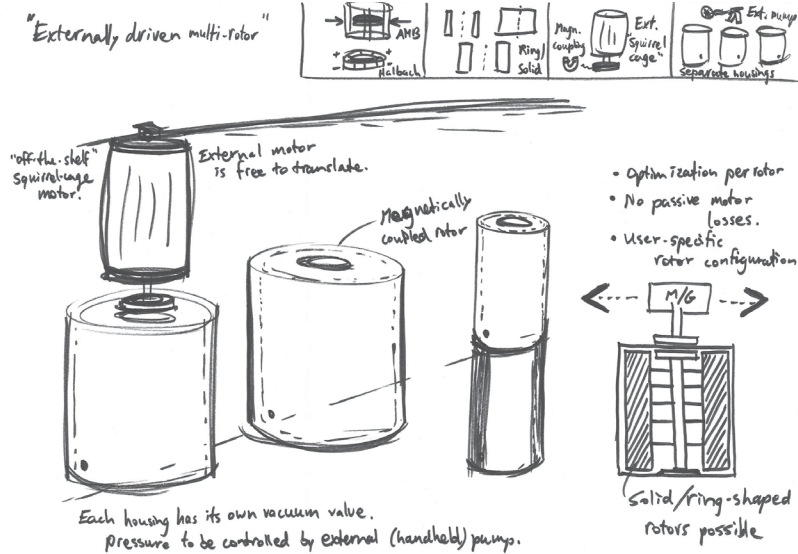 "Externally driven multi-rotor"
AMB
+
-
+
-
Halbach
Ring/
Solid
Magn.
coupling
Ext.
"Squirrel
cage"
Ext. pump
Separate housings
"off-the-shelf"
squirrel-cage
motor.
External motor
is free to translate.
Magnetically
coupled rotor
• Optimization per rotor
• No passive motor
losses.
• User-specific
rotor configuration
M/G
Solid/ring-shaped
rotors possible
Each housing has its own vacuum valve.
pressure to be controlled by external (handheld) pump.